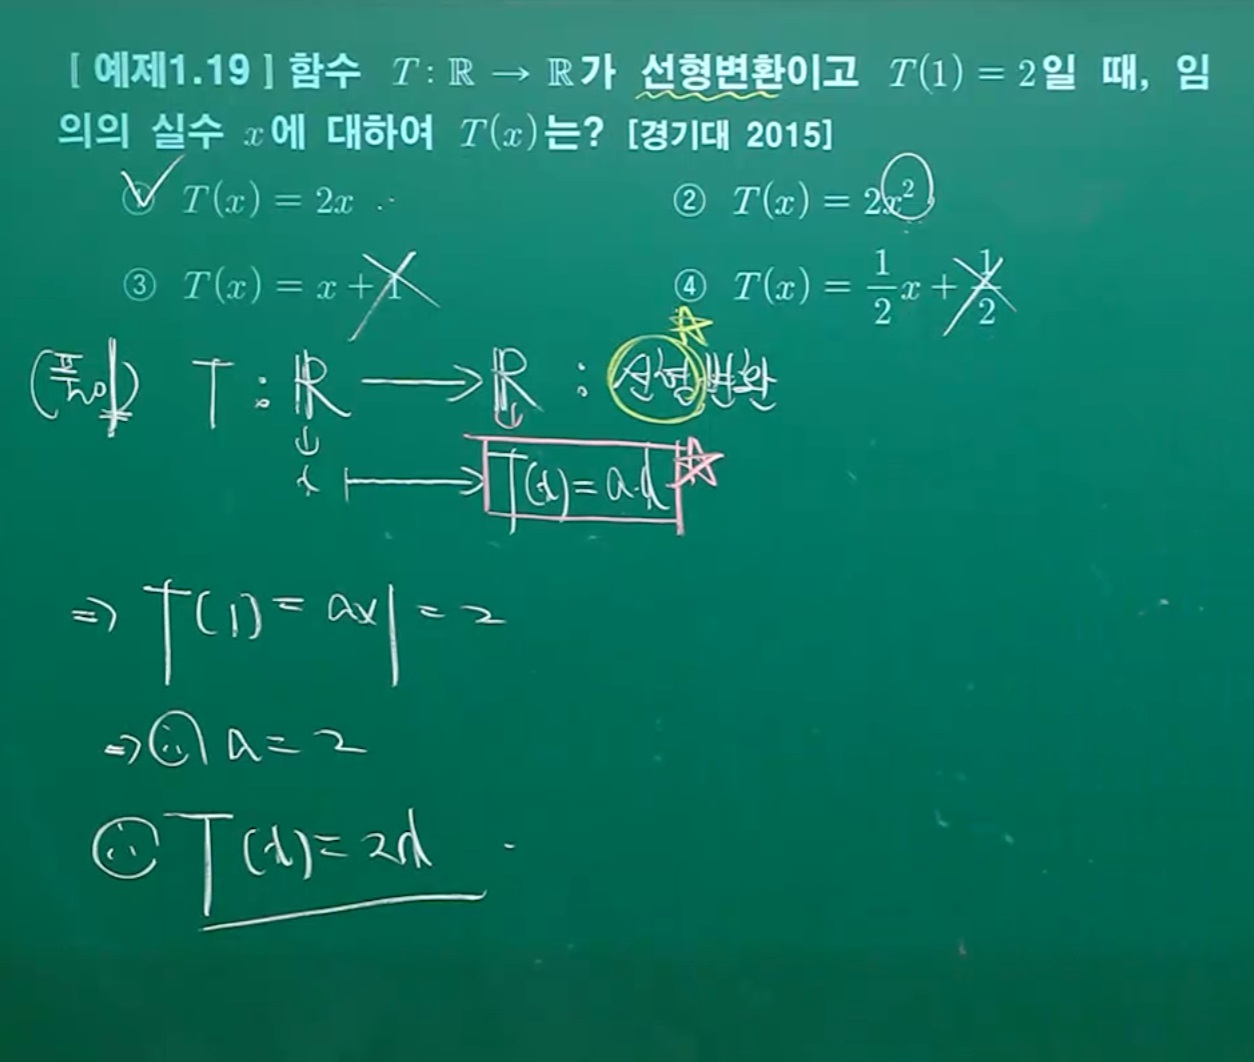 [ 예제1.19 ] 함수 T : ℝ → ℝ가 선형변환이고 T(1) = 2일 때, 임
의의 실수 x에 대하여 T(x)는? [경기대 2015]
① T(x) = 2x ② T(x) = 2x²
③ T(x) = x + 1 ④ T(x) = 1/2 x + 1/2
(풀이) T : ℝ → ℝ : 선형변환
x ↦ T(x) = a·x
⇒ T(1) = a×1 = 2
⇒ ∴ a = 2
∴ T(x) = 2x